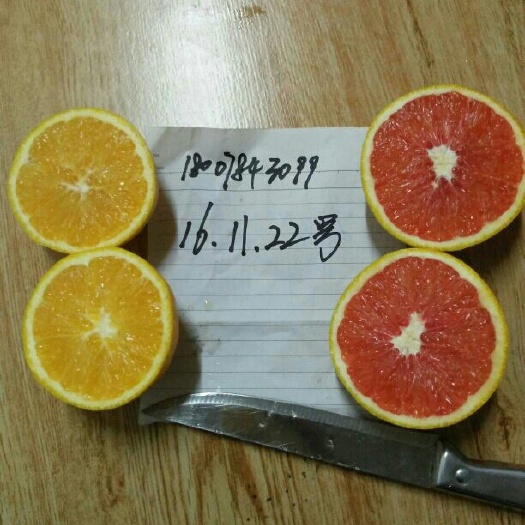 18007843099
16.11.22号